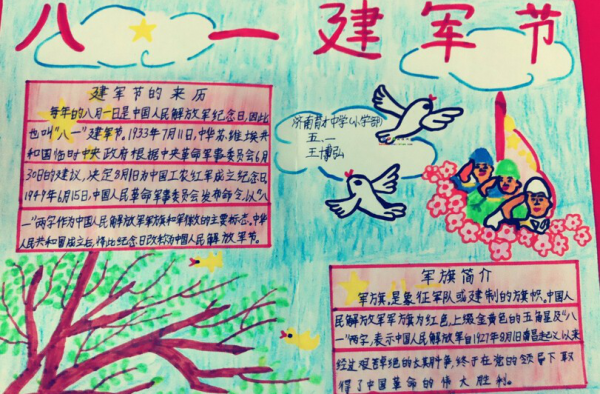 八一建军节
建军节的来历
每年的八月一日是中国人民解放军纪念日,因此
也叫“八一”建军节。1933年7月11日,中华苏维埃共
和国临时中央政府根据中央革命军事委员会6月
30日的建议,决定8月1日为中国工农红军成立纪念日。
1949年6月15日,中国人民革命军事委员会发布命令,以“八
一”两字作为中国人民解放军军旗和军徽的主要标志。中华
人民共和国成立后,将此纪念日改称为中国人民解放军节。
济南育才中学(小学部)
五.一
王博弘
军旗简介
军旗,是象征军队或建制的旗帜。中国人
民解放军军旗为红色,上缀金黄色的五角星及“八
一”两字,表示中国人民解放军自1927年8月1日南昌起义以来
经过艰苦卓绝的 斗争,终于在党的领导下取
得了中国革命的伟大胜利。